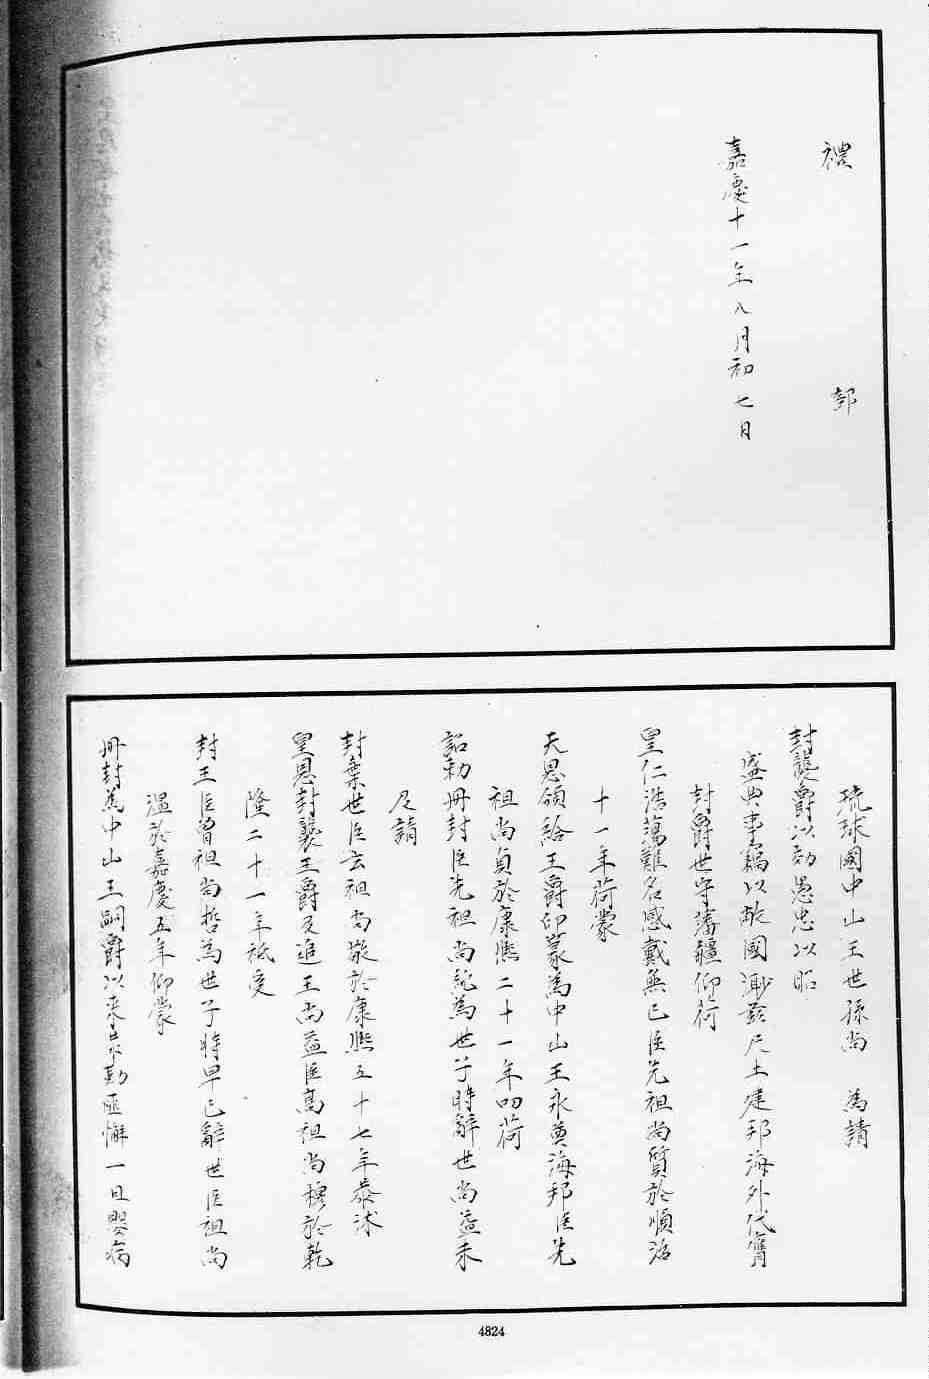 禮　部
嘉慶十一年八月初七日
琉球國中山王世孫尚　為請
封襲爵以効愚忠以昭
盛典事竊以敝國渺茲尺土建邦海外代膺
封爵世守藩疆仰荷
皇仁浩蕩難名感戴無已臣先祖尚質於順治
十一年荷蒙
天恩頒給王爵印篆為中山王永奠海邦臣先
祖尚貞於康熙二十一年叨荷
詔勅冊封臣先祖尚純為世子時辭世尚益未
及請
封棄世臣玄祖尚敬於康熙五十七年恭沐
皇恩封襲王爵及追王尚益臣高祖尚穆於乾
隆二十一年祗受
封王臣曾祖尚哲為世子時早已辭世臣祖尚
溫於嘉慶五年仰蒙
冊封為中山王嗣爵以來恭勤匪懈一旦嬰病
4824